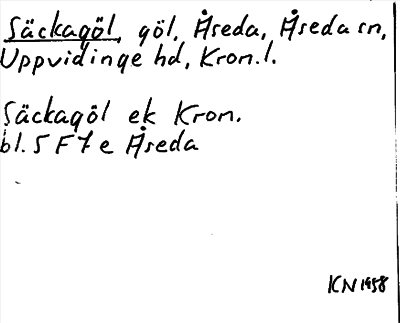 Säckagöl, göl, Åseda, Åseda sn,
Uppvidinge hd, Kron. l.
Säckagöl ek Kron.
bl. 5 F 7 e Åseda
KN 1958